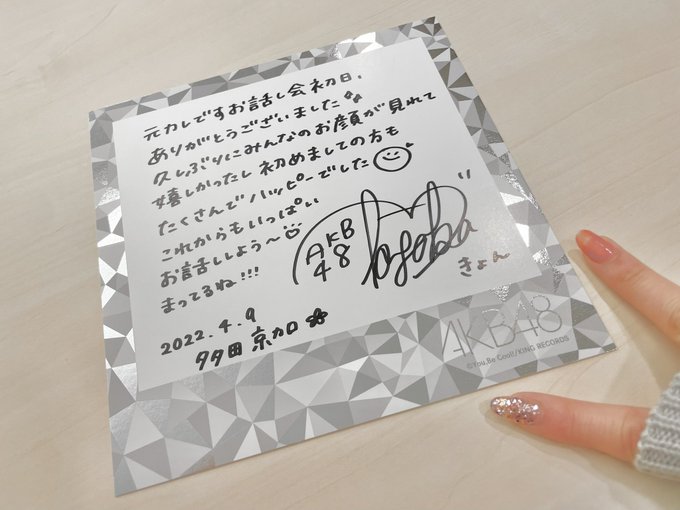 元カレですお話し会初日、
ありがとうございました
久しぶりにみんなのお顔が見れて
嬉しかったし初めましての方も
たくさんでハッピーでした
これからもいっぱい
お話ししよう〜
まってるね!!!
AKB
48
きょん
2022.4.9
多田 京加
AKB48
©You, Be Cool!/KING RECORDS